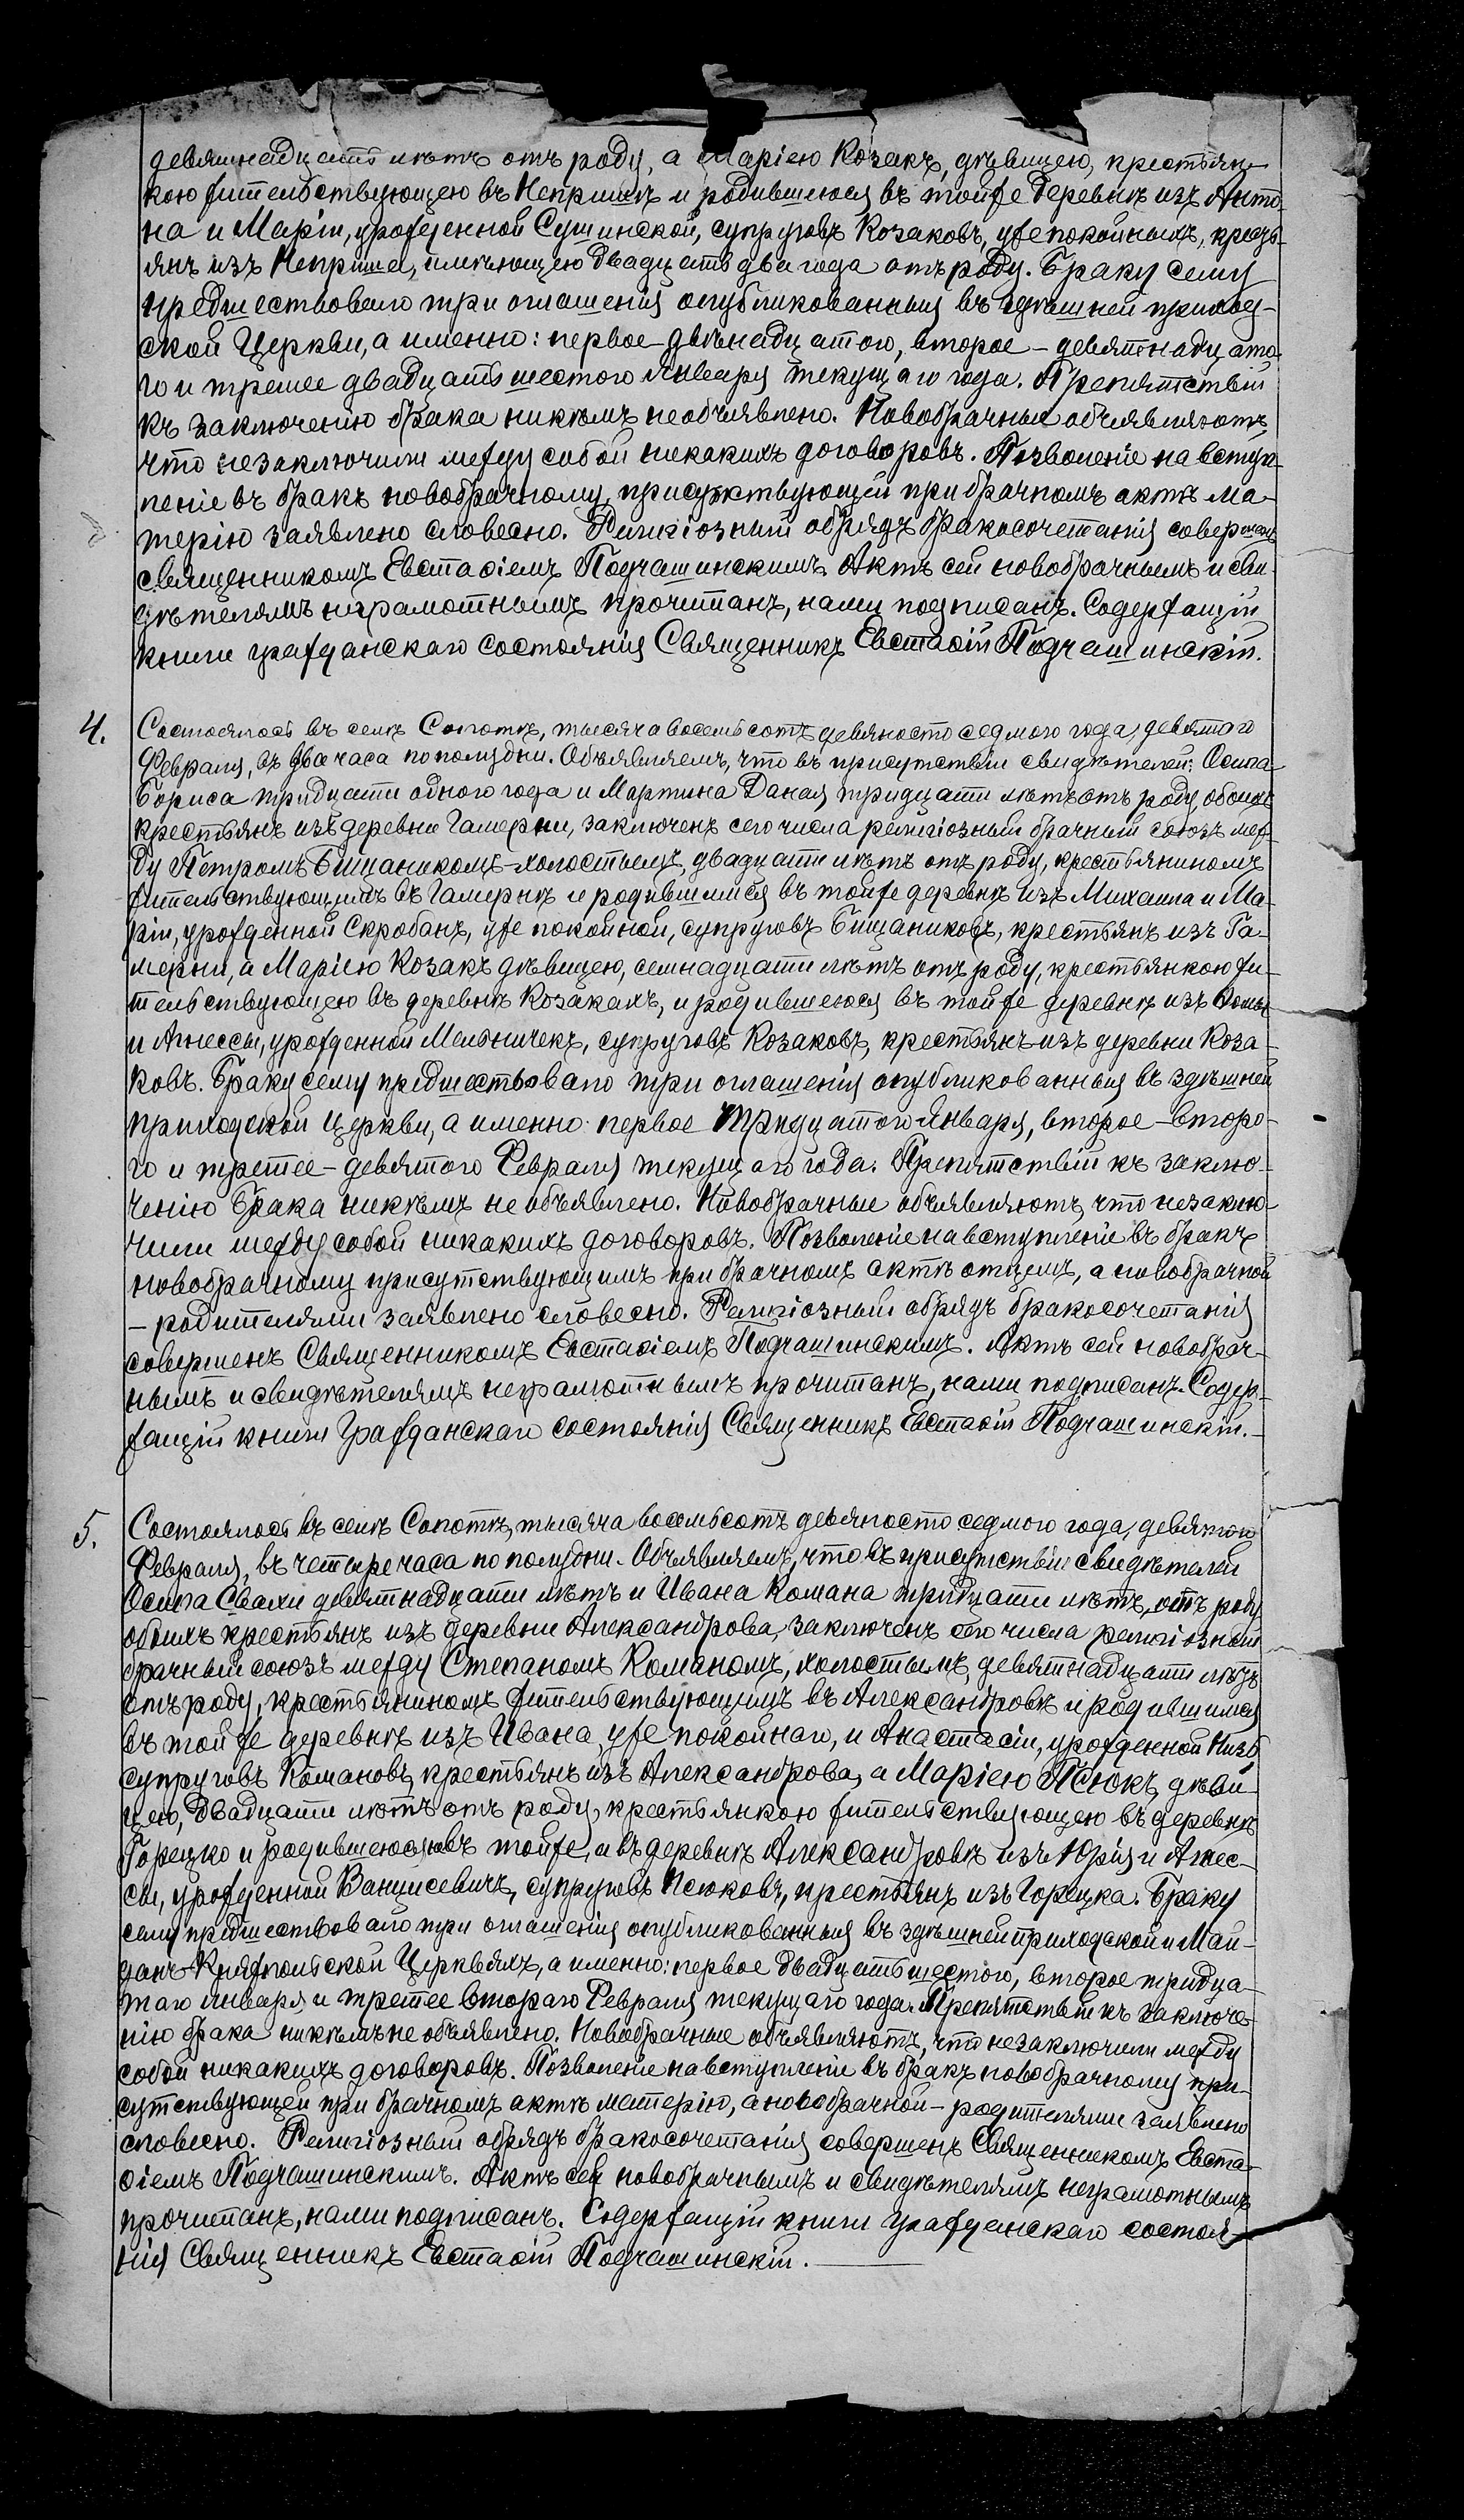 девятнадцать лѣтъ отъ роду, а Маріею Козакъ, дѣвицею, крестьян-
кою жительствующею въ Непришѣ и родившеюся въ тойже деревнѣ изъ Анто-
на и Маріи, урожденной Сушинской, супруговъ Козаковъ, уже покойныхъ, кресть-
янъ изъ Неприша, имѣющею двадцать два года отъ роду. Браку сему
предшествовало три оглашенія опубликованныя въ здѣшней приход-
ской Церкви, а именно: первое – двѣнадцатого, второе – девятнадцато-
го и третее двадцать шестого Января текущаго года. Препятствій
къ заключенію брака никѣмъ необъявлено. Новобрачные объявляютъ,
что незаключили между собой никакихъ договоровъ. Позволеніе на вступ-
леніе въ бракъ новобрачному, присутствующей при брачномъ актѣ ма-
терію заявлено словесно. Религіозный обрядъ бракосочетанія совершенъ
священникомъ Евстаѳіемъ Подчашинскимъ. Актъ сей новобрачнымъ и сви-
дѣтелямъ неграмотнымъ прочитанъ, нами подписанъ. Содержащій
книги гражданскаго состоянія Священникъ Евстаѳій Подчашинскій.
4. Состоялось въ селѣ Сопоткѣ, тысяча восемьсотъ девяносто седмого года, девятого
Февраля, въ два часа по полудни. Объявляемъ, что въ присутствіи свидѣтелей: Осипа
Бориса тридцати одного года и Мартина Даная тридцати лѣтъ отъ роду обоихъ
крестьянъ изъ деревни Гамерни, заключенъ сего числа религіозный брачный союзъ меж-
ду Петромъ Бищаникомъ – холостымъ, двадцати лѣтъ отъ роду, крестьяниномъ
жительствующимъ въ Гамернѣ и родившимся въ тойже деревнѣ изъ Михаила и Ма-
ріи, урожденной Скробанъ, уже покойной, супруговъ Бищаниковъ, крестьянъ изъ Га-
мерни, а Маріею Козакъ дѣвицею, семнадцати лѣтъ отъ роду, крестьянкою жи-
тельствующею въ деревнѣ Козакахъ, и родившеюся въ тойже деревнѣ изъ Ѳомы
и Агнессы, урожденной Мельничекъ, супруговъ Козаковъ, крестьянъ изъ деревни Коза-
ковъ. Браку сему предшествовало три оглашенія опубликованныя въ здѣшней
приходской Церкви, а именно: первое тридцатого Января, второе – второ-
го и третее – девятого Февраля текущаго года. Препятствій къ заклю-
ченію брака никѣмъ не объявлено. Новобрачные объявляютъ, что незаклю-
чили между собой никакихъ договоровъ. Позволеніе на вступленіе въ бракъ
новобрачному присутствующимъ при брачномъ актѣ отцемъ, а новобрачной
– родителями заявлено словесно. Религіозный обрядъ бракосочетанія
совершенъ Священникомъ Евстаѳіемъ Подчашинскимъ. Актъ сей новобрач-
нымъ и свидѣтелямъ неграмотнымъ прочитанъ, нами подписанъ. Содер-
жащій книги Гражданскаго состоянія Священникъ Евстаѳій Подчашинскій. –
5. Состоялось въ селѣ Сопоткѣ, тысяча восемьсотъ девяносто седмого года, девятого
Февраля, въ четыре часа по полудни. Объявляемъ, что въ присутствіи свидѣтелей
Осипа Свахи девятнадцати лѣтъ и Ивана Комана тридцати лѣтъ, отъ роду
обоихъ крестьянъ изъ деревни Александрова, заключенъ сего числа религіозный
брачный союзъ между Степаномъ Команомъ, холостымъ, девятнадцати лѣтъ
отъ роду, крестьяниномъ жительствующимъ въ Александровѣ и родившимся
въ тойже деревнѣ изъ Ивана, уже покойнаго, и Анастасіи, урожденной Низь
супруговъ Комановъ, крестьянъ изъ Александрова, а Маріею Псюкъ, дѣви-
цею, двадцати лѣтъ отъ роду, крестьянкою жительствующею въ деревнѣ
Горецко и родившеюся въ тойже, и въ деревнѣ Александровѣ изъ Юрія и Агнес-
сы, урожденной Ванцисевичъ, супруговъ Псюковъ, крестьянъ изъ Горецка. Браку
сему предшествовало три оглашенія опубликованныя въ здѣшней приходской и Май-
данъ-Княжпольской Церквяхъ, а именно: первое двадцать шестого, второе тридца-
таго января и третее второго Февраля текущаго года. Препятствій къ заключе-
нію брака никѣмъ не объявлено. Новобрачные объявляютъ, что незаключили между
собой никакихъ договоровъ. Позволеніе на вступленіе въ бракъ новобрачному при-
сутствующей при брачномъ актѣ матерію, а новобрачной – родителями заявлено
словесно. Религіозный обрядъ бракосочетанія совершенъ Священникомъ Евста-
ѳіемъ Подчашинскимъ. Актъ сей новобрачнымъ и свидѣтелямъ неграмотнымъ
прочитанъ, нами подписанъ. Содержащій книги гражданскаго состоя-
нія Священникъ Евстаѳій Подчашинскій.